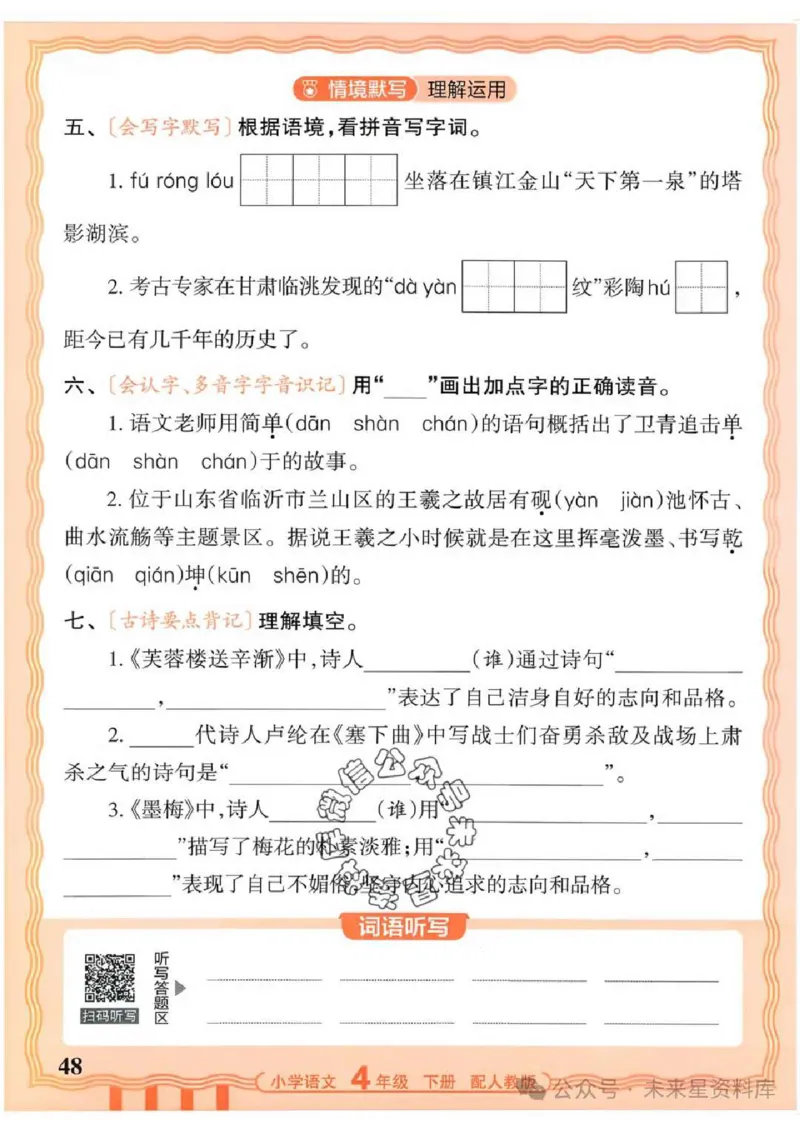 情境默写 理解运用
五、[会写字默写]根据语境,看拼音写字词。
1. fú róng lóu 坐落在镇江金山“天下第一泉”的塔
影湖滨。
2. 考古专家在甘肃临洮发现的“dà yàn 纹”彩陶hú ,
距今已有几千年的历史了。
六、[会认字、多音字字音识记]用“____”画出加点字的正确读音。
1. 语文老师用简单(dān shàn chán)的语句概括出了卫青追击单
(dān shàn chán)于的故事。
2. 位于山东省临沂市兰山区的王羲之故居有砚(yàn jiàn)池怀古、
曲水流觞等主题景区。据说王羲之小时候就是在这里挥毫泼墨、书写乾
(qiān qián)坤(kūn shēn)的。
七、[古诗要点背记]理解填空。
1.《芙蓉楼送辛渐》中,诗人__________(谁)通过诗句“____________
_________,____________________”表达了自己洁身自好的志向和品格。
2. ______代诗人卢纶在《塞下曲》中写战士们奋勇杀敌及战场上肃
杀之气的诗句是“____________________________________”。
3.《墨梅》中,诗人__________(谁)用“____________________,_________
___________”描写了梅花的朴素淡雅;用“____________________,_________
___________”表现了自己不媚俗、坚守内心追求的志向和品格。
微信公众号未来星资料库
词语听写
扫码听写
听写答题区
48
小学语文 4年级 下册 配人教版
公众号·未来星资料库